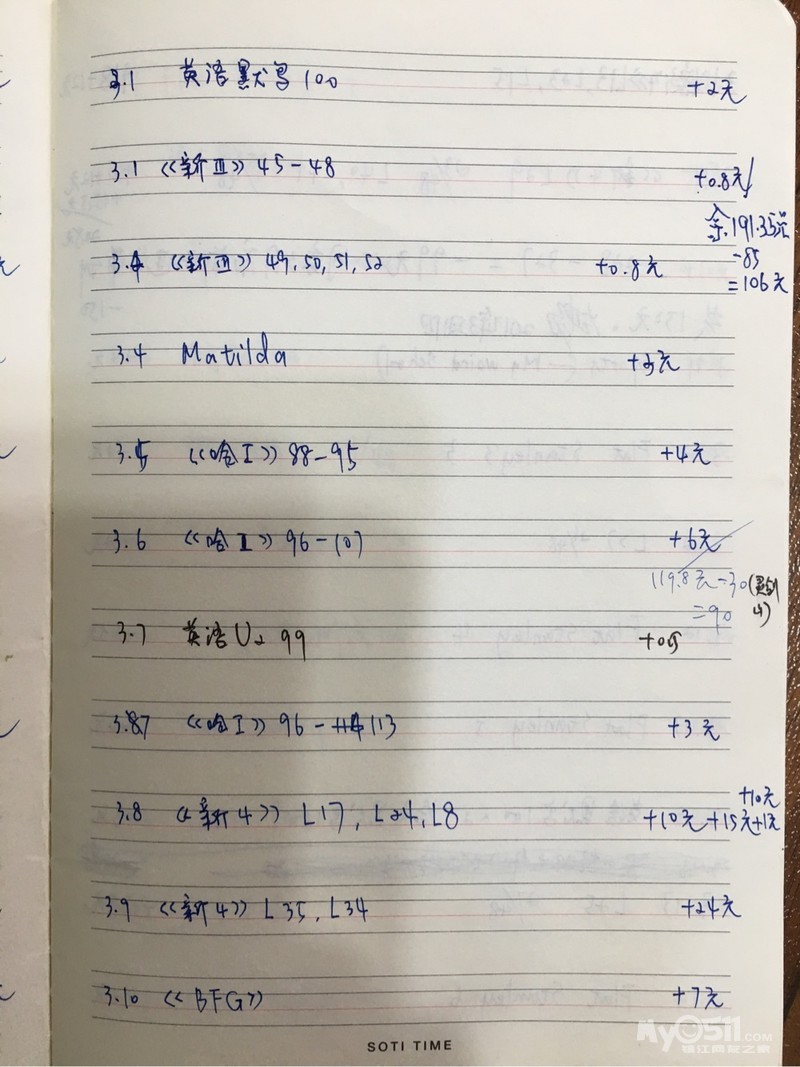 3.1 英语默写100 +2元
3.1 《新Ⅲ》45-48 +0.8元
余.191.35元
-85
=106元
3.4 《新Ⅲ》49,50,51,52 +0.8元
3.4 Matilda +3元
3.5 《哈I》88-95 +4元
3.6 《哈I》96-107 +6元
119.8元-30
=90
3.7 英语U2 99 +0.5
3.7 《哈I》96-113 +3元
+10元
3.8 《新4》L17, L24, L8 +10元+15元+1元
3.9 《新4》L35, L34 +24元
3.10 《BFG》 +7元
SOTI TIME
My0511.COM
镇江网友之家